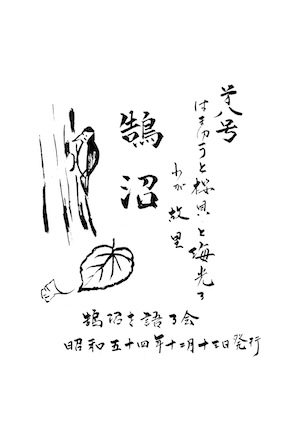 第八号
はまゆうと桜貝と海光る
わが故里
鵠沼
鵠沼を語る会
昭和五十四年十二月日発行